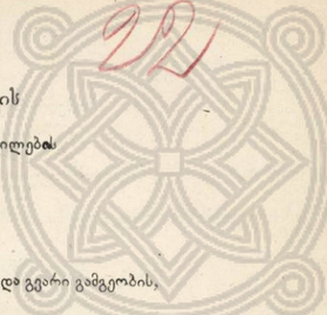 22
ის
ილების
და გვარი გამგეობის,